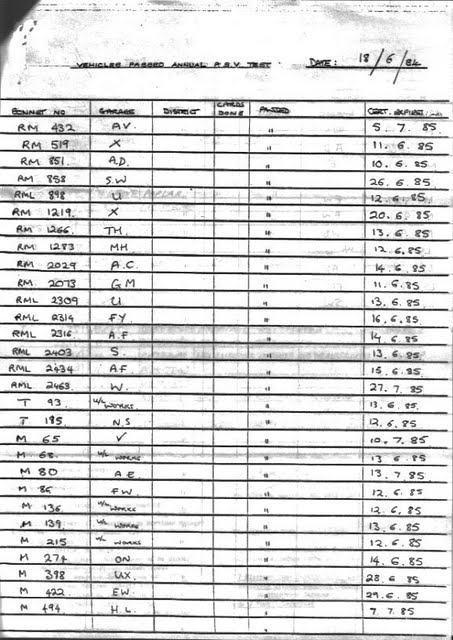 VEHICLES PASSED ANNUAL P.S.V TEST DATE: 18/6/84
BONNET NO GARAGE DISTRICT CARDS DONE PASSED CERT. EXPIRES
RM 432 AV. " 5. 7. 85
RM 519 X " 11. 6. 85
RM 851 A.D. " 10. 6. 85
RM 858 S.W " 26. 6. 85
RML 898 U " 12. 6. 85
RM 1219 X " 20. 6. 85
RM 1266 TH. " 13. 6. 85
RM 1283 MH " 12. 6. 85
RM 2029 A.C. " 14. 6. 85
RM 2073 GM " 11. 6. 85
RML 2309 U " 13. 6. 85
RML 2314 FY. " 16. 6. 85
RML 2316 A.F " 14. 6. 85
RML 2403 S. " 13. 6. 85
RML 2434 AF " 15. 6. 85
RML 2463 W. " 27. 7. 85
T 93 U/L WORKS " 13. 6. 85
T 195 N.S " 12. 6. 85
M 65 V " 10. 7. 85
M 68 U/L WORKS " 13 6. 85
M 80 A E. " 13. 7 85
M 86 F W. " 12. 6. 85
M 136 U/L WORKS " 12. 6. 85
M 139 U/L WORKS " 13. 6. 85
M 215 U/L WORKS " 12. 6. 85
M 274 ON " 14. 6. 85
M 398 UX. " 28. 6 85
M 422 EW. " 29. 6. 85
M 494 H.L. " 7. 7. 85
"